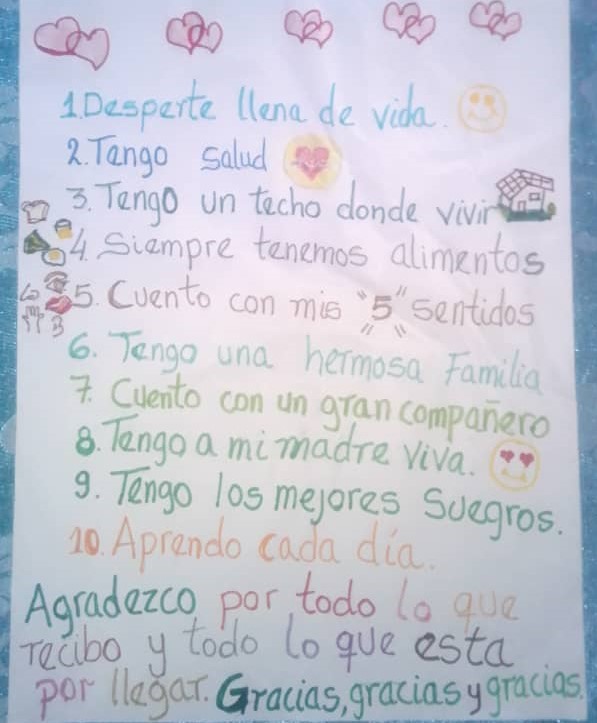 1. Desperte llena de vida.
2. Tengo salud
3. Tengo un techo donde vivir
4. Siempre tenemos alimentos
5. Cuento con mis "5" sentidos
6. Tengo una hermosa Familia
7. Cuento con un gran compañero
8. Tengo a mi madre viva.
9. Tengo los mejores Suegros.
10. Aprendo cada día.
Agradezco por todo lo que
recibo y todo lo que esta
por llegar. Gracias, gracias y gracias.